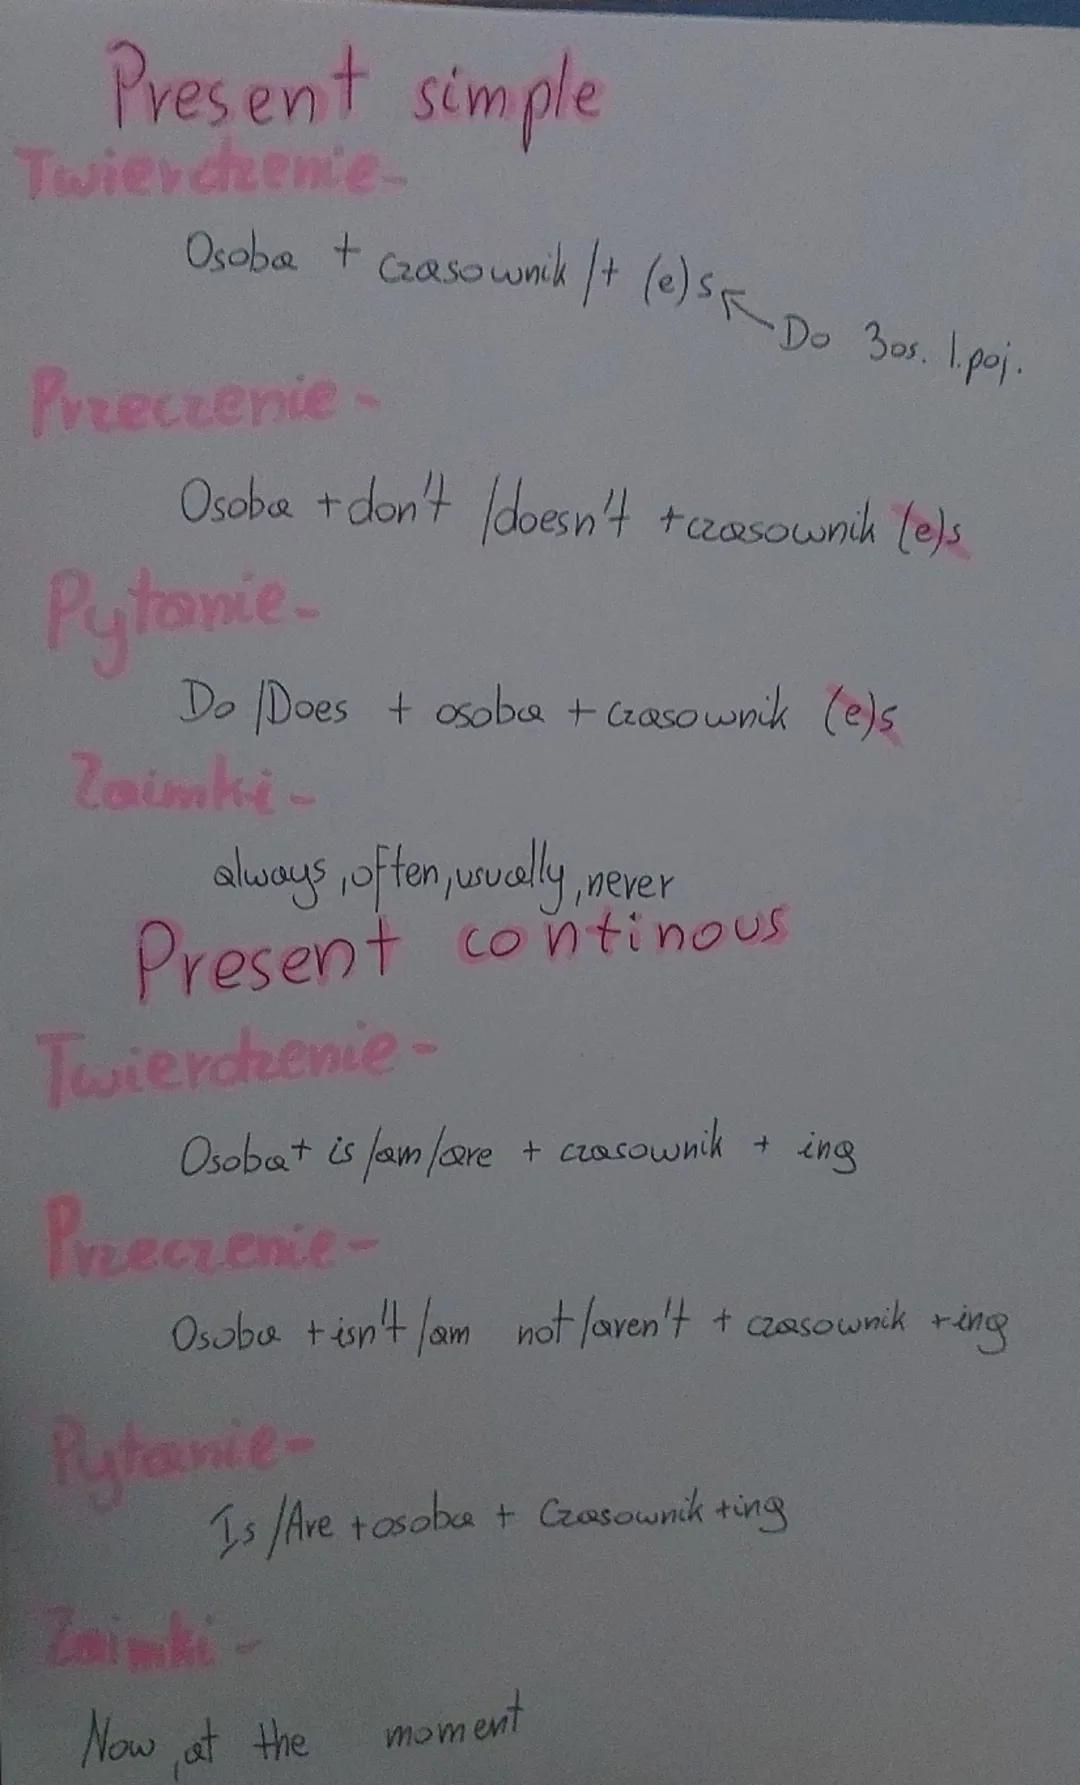 Present simple
Twierdzenie-
Osoba + czasownik /+ (e)s
Do 3os. l.poj.
Przeczenie -
Osoba + don't /doesn't + czasownik (e)s
Pytanie-
Do /Does + osoba + czasownik (e)s
Zaimki -
always, often, usually, never
Present continous
Twierdzenie -
Osoba + is /am/are + czasownik + ing
Przeczenie -
Osoba + isn't /am not /aren't + czasownik + ing
Pytanie-
Is /Are + osoba + Czasownik + ing
Zaimki -
Now, at the moment